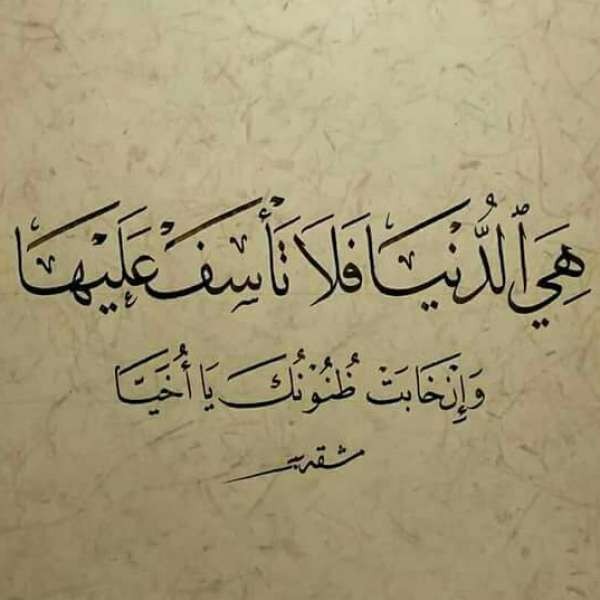 هِيَ ٱلدُّنْيَا فَلَا تَأْسَفْ عَلَيْهَا
وَإِنْ خَابَتْ ظُنُوْنُكَ يَا أُخَيَّا